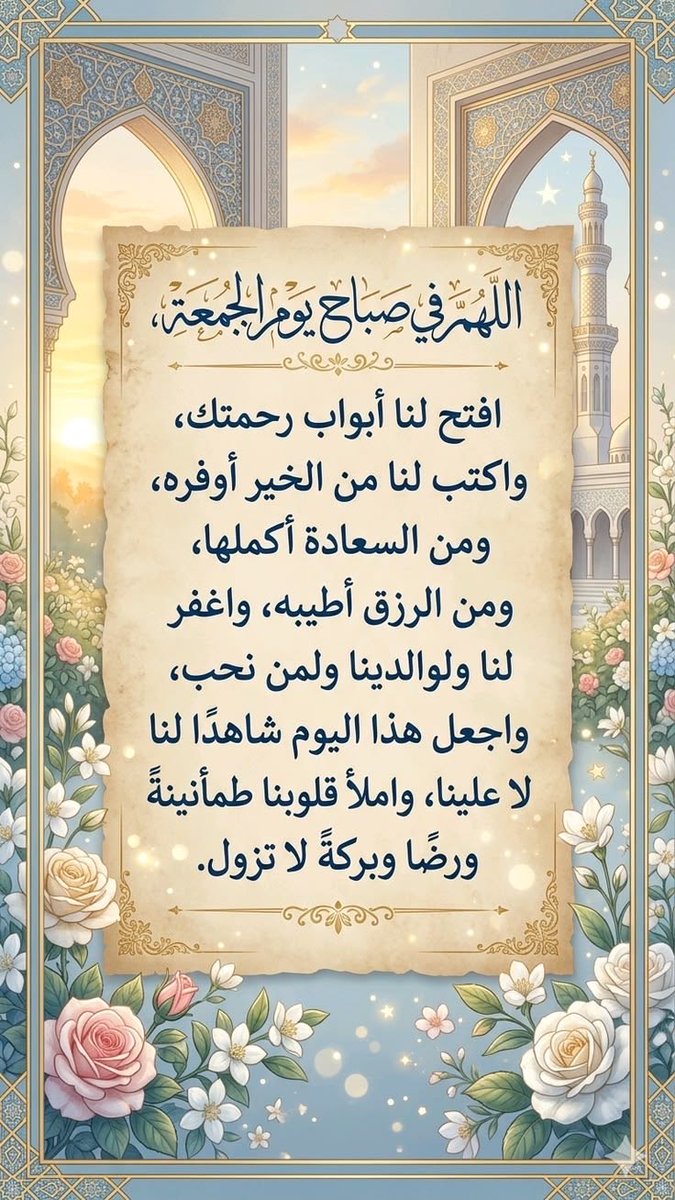 اللَّهُمَّ في صَبَاحِ يَوْمِ الجُمعَةِ،
افتح لنا أبواب رحمتك،
واكتب لنا من الخير أوفره،
ومن السعادة أكملها،
ومن الرزق أطيبه، واغفر
لنا ولوالدينا ولمن نحب،
واجعل هذا اليوم شاهدًا لنا
لا علينا، واملأ قلوبنا طمأنينةً
ورضًا وبركةً لا تزول.